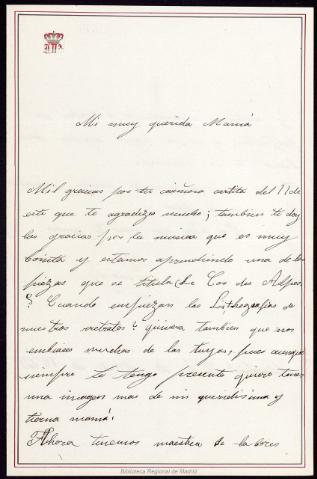 Mi muy querida Mamá
Mil gracias por tu cariñosa cartita del 11 de
este que te agradezco mucho; tambien te doy
las gracias por la musica que es muy
bonita y estamos aprendiendo una de las
piezas que se titula (Le Cor des Alpes)
? Cuando empiezan las Lithografias de
nuestros retratos? quisiera tambien que nos
enviases muchas de las tuyas, pues aunque
siempre te tengo presente quiero tener
una imagen mas de mi queridisima y
tierna mamá!
Ahora tenemos maestra de labores
Biblioteca Regional de Madrid